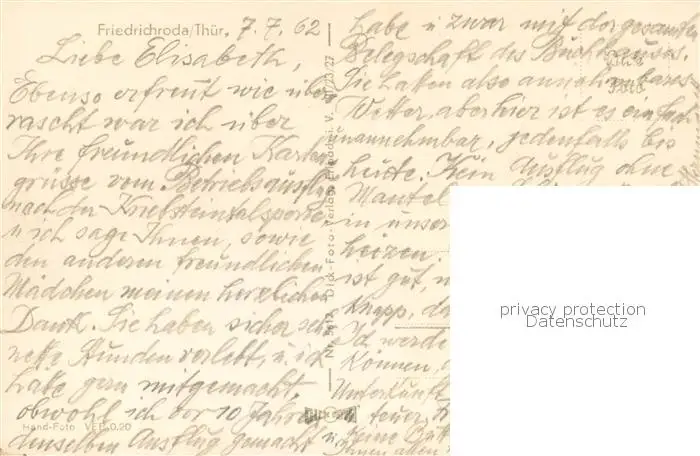 Friedrichroda/Thür. 7.7.62
Liebe Elisabeth,
Ebenso erfreut wie über
rascht war ich über
Ihre freundlichen Karten
grüsse vom Betriebsausflug
nach der Kriebsteintalsperre
u ich sage Ihnen, sowie
den anderen freundlichen
Mädchen meinen herzlichen
Dank. Sie haben sicher sehr
nette Stunden verlebt, u ich
hätte gern mitgemacht,
obwohl ich vor 10 Jahren
denselben Ausflug gemacht
Hand-Foto VEP 0.20
Dick-Foto-Verlag
habe u zwar mit der gesamten
Belegschaft des Buchhauses.
Sie hatten also annehmbares
Wetter, aber hier ist es einfach
unannehmbar, jedenfalls bis
heute. Kein Ausflug ohne
Mantel
in unser
heizen.
ist gut,
knapp, da
Ich werde
können,
Unterkunft
teuer,
Echte
Foto
privacy protection
Datenschutz